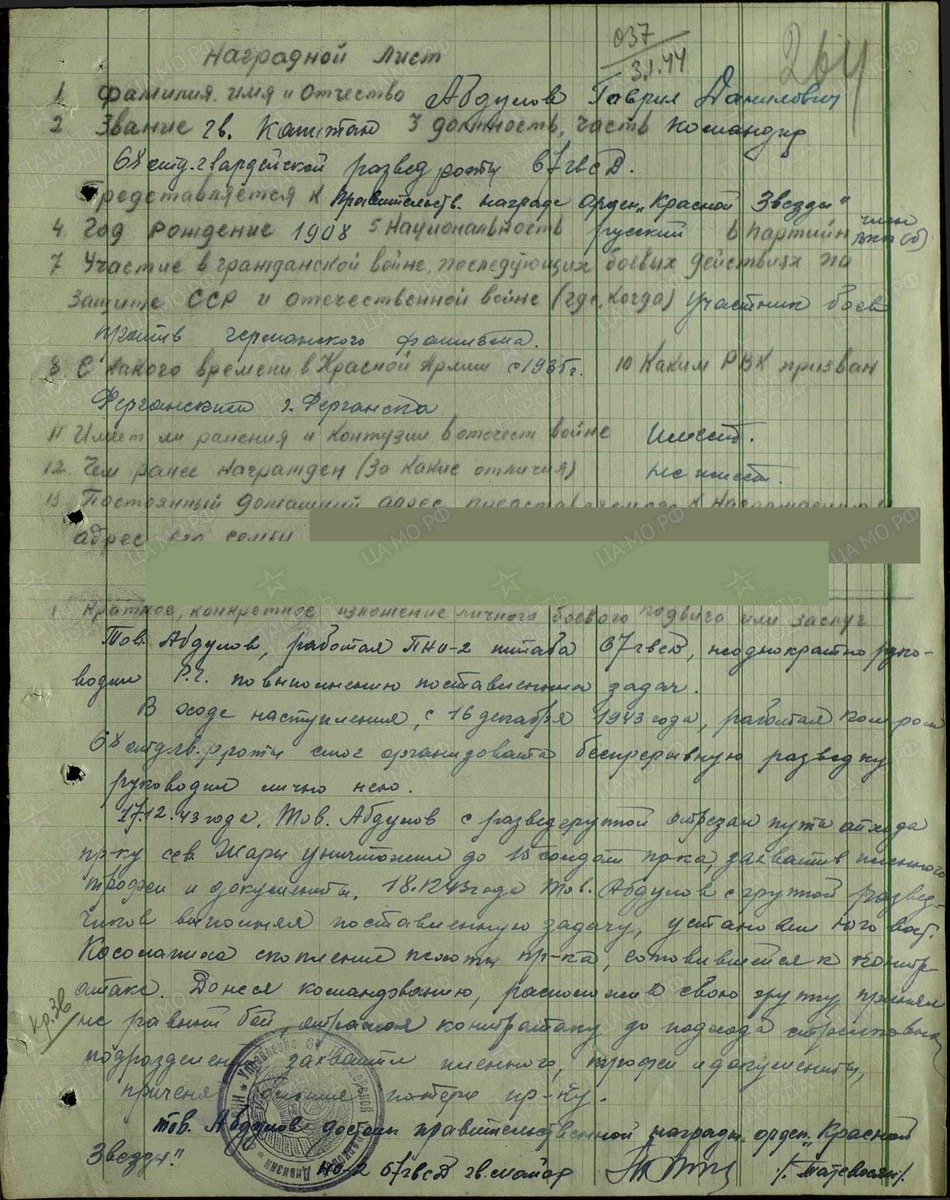 037
3.1.44
264
Наградной Лист
1 Фамилия, имя и отчество Абдулов Гаврил Данилович
2 Звание гв. Капитан 3 должность, часть командир
68 отд. гвардейской развед роты 67 гвсд.
Представляется к правительств. награде орден „Красной Звезды"
4 Год рождение 1908 5 Национальность русский 6 Партийн член ВКП(б)
7 Участие в гражданской войне, последующих боевых действиях на
защите ССР и отечественной войне (где, когда) участник боев
против германского фашизма.
8 С какого времени в Красной Армии с 1935г. 10 Каким РВК призван
Ферганским г. Фергана
11 Имеет ли ранения и контузии в отечест войне имеет.
12 Чем ранее награжден (за какие отличия) не имеет.
13 Постоянный домашний адрес представляемого к награждению и
адрес его семьи
1 Краткое, конкретное изложение личного боевого подвига или заслуг
Тов. Абдулов, работая ПНО-2 штаба 67 гвсд, неоднократно руко-
водил Р.Г. по выполнению поставленных задач.
В ходе наступления, с 16 декабря 1943 года, работая ком роты
68 отд. гв. р/роты смог организовать беспрерывную разведку
руководил лично нею.
17.12.43 года. Тов. Абдулов с разведгруппой отрезал пути отхода
пр-ку сев. Жары уничтожил до 15 солдат пр-ка, захватив пленного
трофеи и документы. 18.12.43 года тов. Абдулов с группой развед-
чиков выполняя поставленную задачу, установил юго вост.
скопление пехоты пр-ка, готовившейся к контр
атаке. Донеся командованию, расположив свою группу принял
не равный бой, отражая контратаку до подхода стрелковых
подразделений захватили пленного, трофеи и документы,
причиняя большие потери пр-ку.
Тов. Абдулов достоин правительственной награды орден „Красной
Звезды."
НО-2 67 гвсд гв. майор /Матевосян/.
Кр. Зв
ЦАМО РФ
ПАМЯТЬ